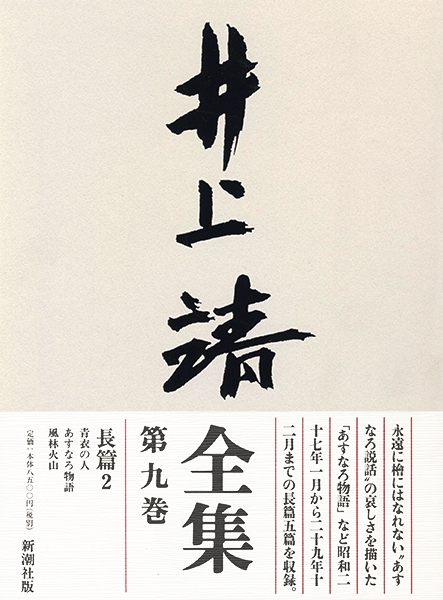 井上靖
永遠に檜にはなれない“あす
なろ説話”の哀しさを描いた
「あすなろ物語」など昭和二
十七年一月から二十九年十
二月までの長篇五篇を収録。
全集
第九巻
長篇2
青衣の人
あすなろ物語
風林火山
定価・本体八五〇〇円(税別)
新潮社版